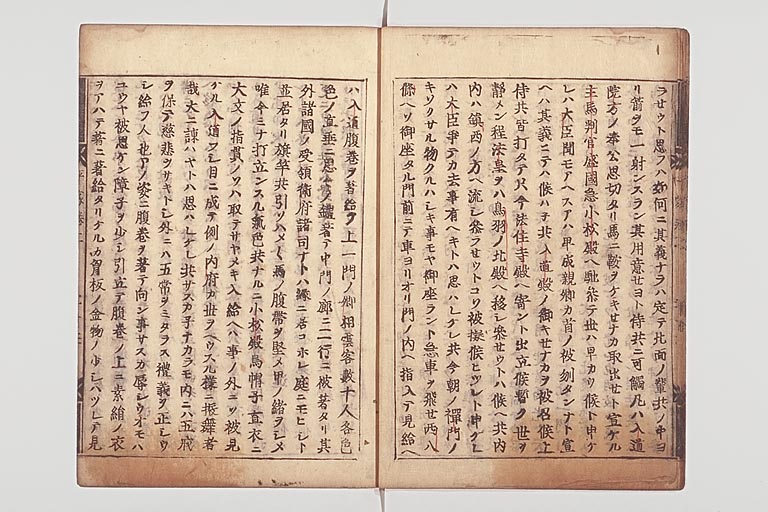 ラセウト思フハ如何ニ其義ナラハ定テ北面ノ輩共ノ中ヨ
リ箭ヲモ一射ンスラン其用意セヨト侍共ニ可觸凡ハ入道
院方ノ奉公思切タリ馬ニ鞍ヲケキセナカ取出セト宣ケル
主馬判官盛國急小松殿ヘ馳參テ世ハ早カウ候ト申ケ
レハ大臣聞モアヘスアハ早成親卿カ首ノ被刎タンナト宣
ヘハ其義ニテハ候ハヲ共入道殿ノ御キセナカヲ被召候上
侍共皆打タテハ今法住寺殿ヘ寄ント出立候暫ク世ヲ
靜メン程法皇ヲハ鳥羽ノ北殿ヘ移シ參セウト候ヘ共内
内ハ鎮西ノ方ヘ流シ參ラセウトコソ被擬候ヒツレト申ケレ
ハ大臣爭テカ去事有ヘキトハ思ハレケレ共今朝ノ禪門ノ
キソクサル物クルハシキ事モヤ御座ラント急車ヲ飛セ西八
條ヘソ御座タル門前ニテ車ヨリオリ門ノ内ヘ指入テ見給ヘ
ハ入道腹巻ヲ著給フ上一門ノ卿相雲客數十人各色
色ノ直垂ニ思思ノ鎧著テ中門ノ廊ニ二行ニ被著タリ其
外諸國ノ受領衛府諸司ナトハ縁ニ居コホレ庭ニモヒシト
並居タリ旗竿共引ソハメ々馬ノ腹帶ヲ堅メ甲ノ緒ヲシメ
唯今ミナ打立ンスル氣色共ナルニ小松殿烏帽子直衣ニ
大文ノ指貫ノソハ取テサヤメキ入給ヘハ事ノ外ニソ被見
ケル入道フシ目ニ成テ例ノ内府カ世ヲヘウスル樣ニ振舞者
哉大ニ諫ハヤトハ思ハレケレ共サスカ子ナカラモ内ニハ五戒
ヲ保テ慈悲ヲサキトシ外ニハ五常ヲミタラス禮義ヲ正シウ
シ給フ人也アノ姿ニ腹巻ヲ著テ向ン事サスカ辱シウオモハ
ユウヤ被思ケン障子ヲ少シ引立テ腹巻ノ上ニ素絹ノ衣
ヲアハテ著ニ著給タリケルカ胷板ノ金物ノ少シハツレテ見